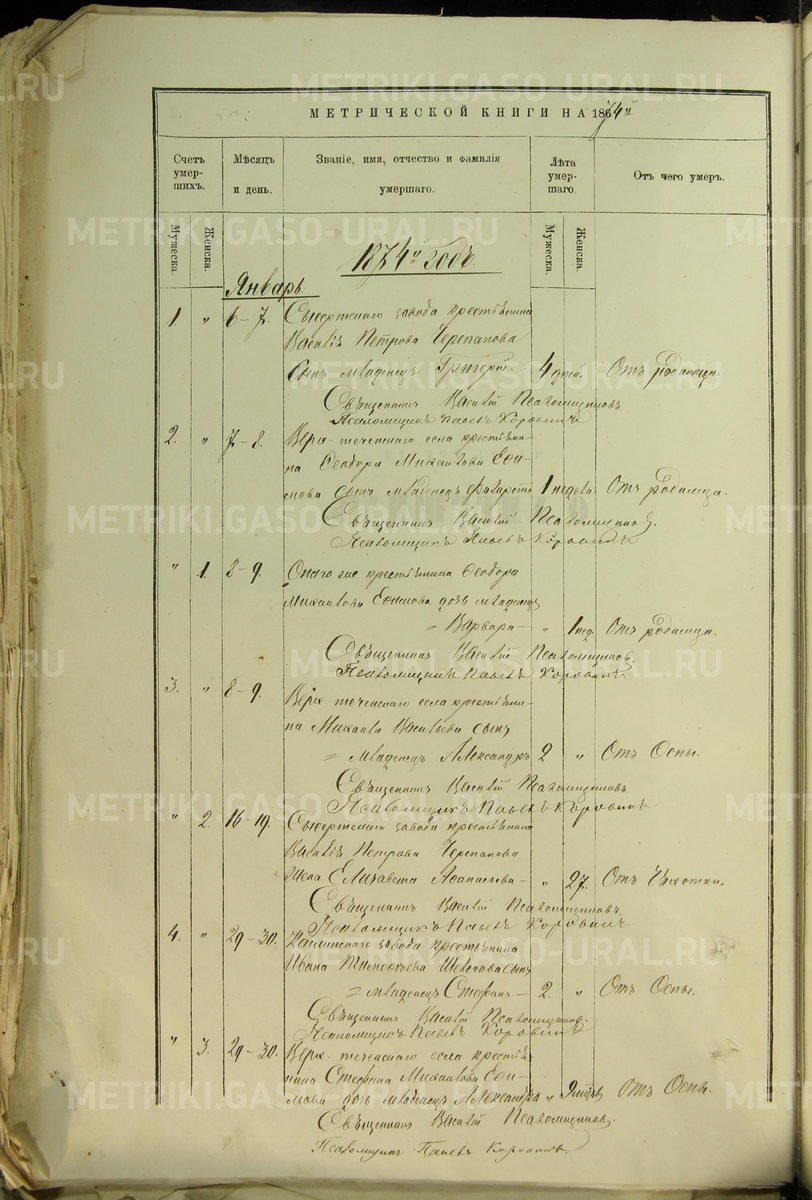 МЕТРИЧЕСКОЙ КНИГИ НА 1874й
Счетъ умер-шихъ. Мѣсяцъ и день. Званіе, имя, отчество и фамилія умершаго. Лѣта умер-шаго. Отъ чего умеръ.
Мужеска. Женска. Мужеска. Женска.
1874й годъ.
Январь
1. " 6-7. Сысертскаго завода крестьянина
Василія Петрова Черепанова
сынъ младенецъ Григорій. 4 дней. Отъ родимца.
Священникъ Василій Псаломщиковъ
Псаломщикъ Павелъ Коровинъ
2. " 7-8. Верх-теченскаго села крестьяни-
на Ѳеодора Михаилова Ефи-
мова сынъ младенецъ Филаретъ 1 недели. Отъ родимца.
Священникъ Василій Псаломщиковъ.
Псаломщикъ Павелъ Коровинъ
" 1. 8-9. Онаго же крестьянина Ѳеодора
Михаилова Ефимова дочь младенецъ
= Варвара - " 1 нед. Отъ родимца.
Священникъ Василій Псаломщиковъ.
Псаломщикъ Павелъ Коровинъ
3. " 8-9. Верх-теченскаго села крестьяни-
на Михаила Васильева сынъ
= младенецъ Александръ 2 " Отъ Оспы.
Священникъ Василій Псаломщиковъ
Псаломщикъ Павелъ Коровинъ
" 2. 16-19. Сысертскаго завода крестьянина
Василія Петрова Черепанова
жена Елизавета Аѳанасьева - " 27. Отъ Чахотки.
Священникъ Василій Псаломщиковъ.
Псаломщикъ Павелъ Коровинъ
4. " 29-30. Каслинскаго завода крестьянина
Ивана сынъ
= младенецъ Стефанъ - 2. " Отъ Оспы.
Священникъ Василій Псаломщиковъ.
Псаломщикъ Павелъ Коровинъ
" 3. 29-30. Верх-теченскаго села крестья-
нина Стефана Михаилова Ефи-
мова дочь младенецъ Александра " Отъ Оспы.
Священникъ Василій Псаломщиковъ.
Псаломщикъ Павелъ Коровинъ.
METRIKI.GASO-URAL.RU